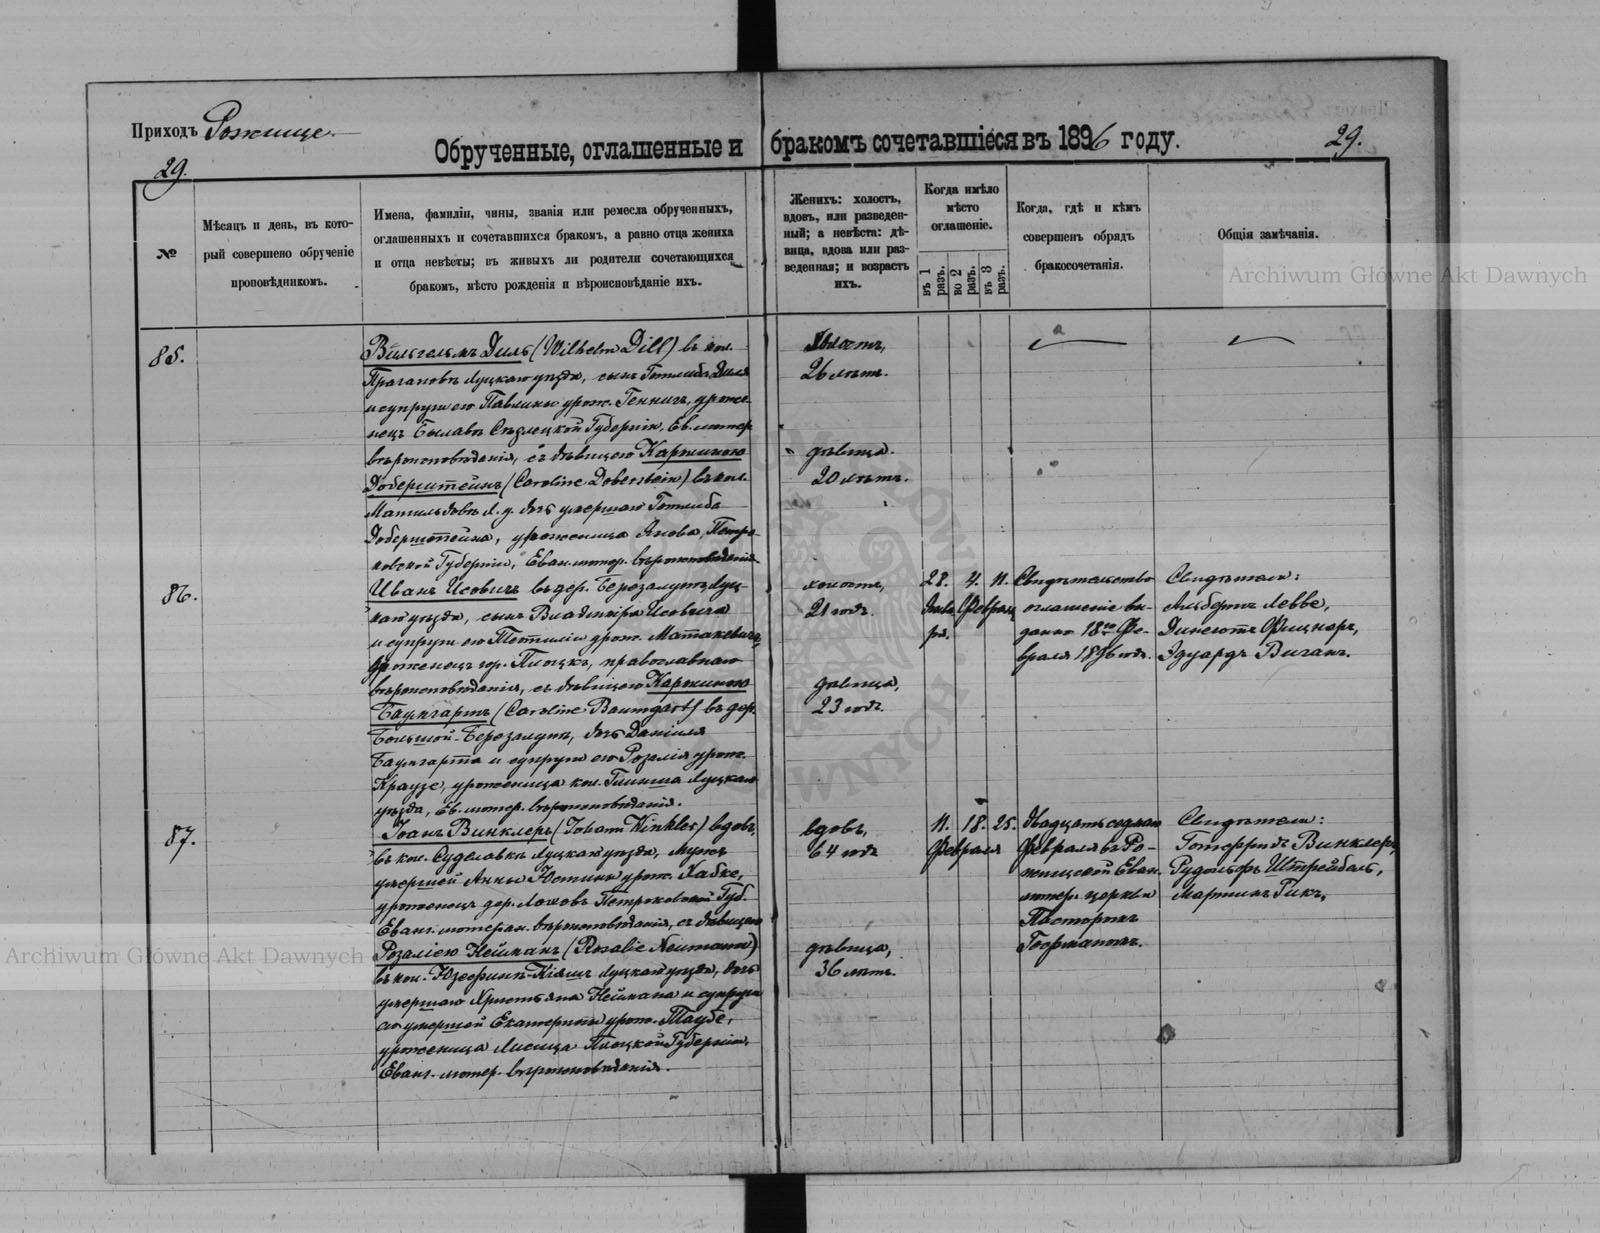 Приходъ Рожище
Обрученные, оглашенные и бракомъ сочетавшіеся въ 1896 году.
29.
29.
№
Мѣсяцъ и день, въ кото-
рый совершено обрученіе
проповѣдникомъ.
Имена, фамиліи, чины, званія или ремесла обрученныхъ,
оглашенныхъ и сочетавшихся бракомъ, а равно отца жениха
и отца невѣсты; въ живыхъ ли родители сочетающихся
бракомъ, мѣсто рожденія и вѣроисповѣданіе ихъ.
Женихъ: холостъ,
вдовъ, или разведен-
ный; а невѣста: дѣ-
вица, вдова или раз-
веденная; и возрастъ
ихъ.
Когда имѣло
мѣсто
оглашеніе.
въ 1 разъ.
во 2 разъ.
въ 3 разъ.
Когда, гдѣ и кѣмъ
совершенъ обрядъ
бракосочетанія.
Общія замѣчанія.
Archiwum Główne Akt Dawnych
85.
Вильгельмъ Диль (Wilhelm Dill) въ кол.
Луцкаго уѣзда, сынъ Готлиба Диля
и супруги его Павлины урож. Геннигъ, уроже-
нецъ Сѣдлецкой Губерніи, Ев. лютер.
вѣроисповѣданія, съ дѣвицею Каролиною
Доберштейнъ (Caroline Doberstein) въ кол.
Матильдовъ Л. у. дочь умершаго Готлиба
Доберштейна, уроженица Янова, Петро-
ковской Губерніи, Еван. лютер. вѣроисповѣданія.
холостъ,
26 лѣтъ.
дѣвица.
20 лѣтъ.
86.
Иванъ Исовичъ въ дер. Березолупъ Луц-
каго уѣзда, сынъ Владиміра Исовича
и супруги его Теотиліи урож. Маткевичъ,
уроженецъ гор. Плоцкъ, православнаго
вѣроисповѣданія, съ дѣвицею Каролиною
Баумгартъ (Caroline Baumgart) въ дер.
Большой-Березолупъ, дочь Даніила
Баумгарта и супруги его Розаліи урож.
Краузе, уроженица кол. Глинища Луцкаго
уѣзда, Ев. лютер. вѣроисповѣданія.
холостъ,
21 годъ.
дѣвица,
23 годъ.
28. 4. 11.
Янва- Февраля
ря.
Свидѣтельство
оглашеніе вы-
дано 18го Фе-
враля 1896 года.
Свидѣтели:
Альбертъ Левве,
Фицнеръ,
Эдуардъ
87.
Іоанъ Винклеръ (Johann Winkler) вдовъ,
въ кол. Луцкаго уѣзда, мужъ
умершей Анны Юстины урож. Хабке,
уроженецъ дер. Петроковской Губ.
Еванг. лютеран. вѣроисповѣданія, съ дѣвицею
Розаліею Нейманъ (Rosalie Neumann)
въ кол. Юзефинъ Луцкаго уѣзда, дочь
умершаго Христьяна Неймана и супруги
его умершей Екатерины урож. Таубе,
уроженица Лисица Плоцкой Губерніи,
Еванг. лютер. вѣроисповѣданія.
вдовъ,
64 годъ
дѣвица,
36 лѣтъ.
11. 18. 25.
Февраля
Двадцать седьмаго
Февраля въ Ро-
жищской Еван.
лютер. церкви
Пасторомъ
Свидѣтели:
Готфридъ Винклеръ,
Рудольфъ Штрейбель,
Мартинъ Гикъ.
Archiwum Główne Akt Dawnych